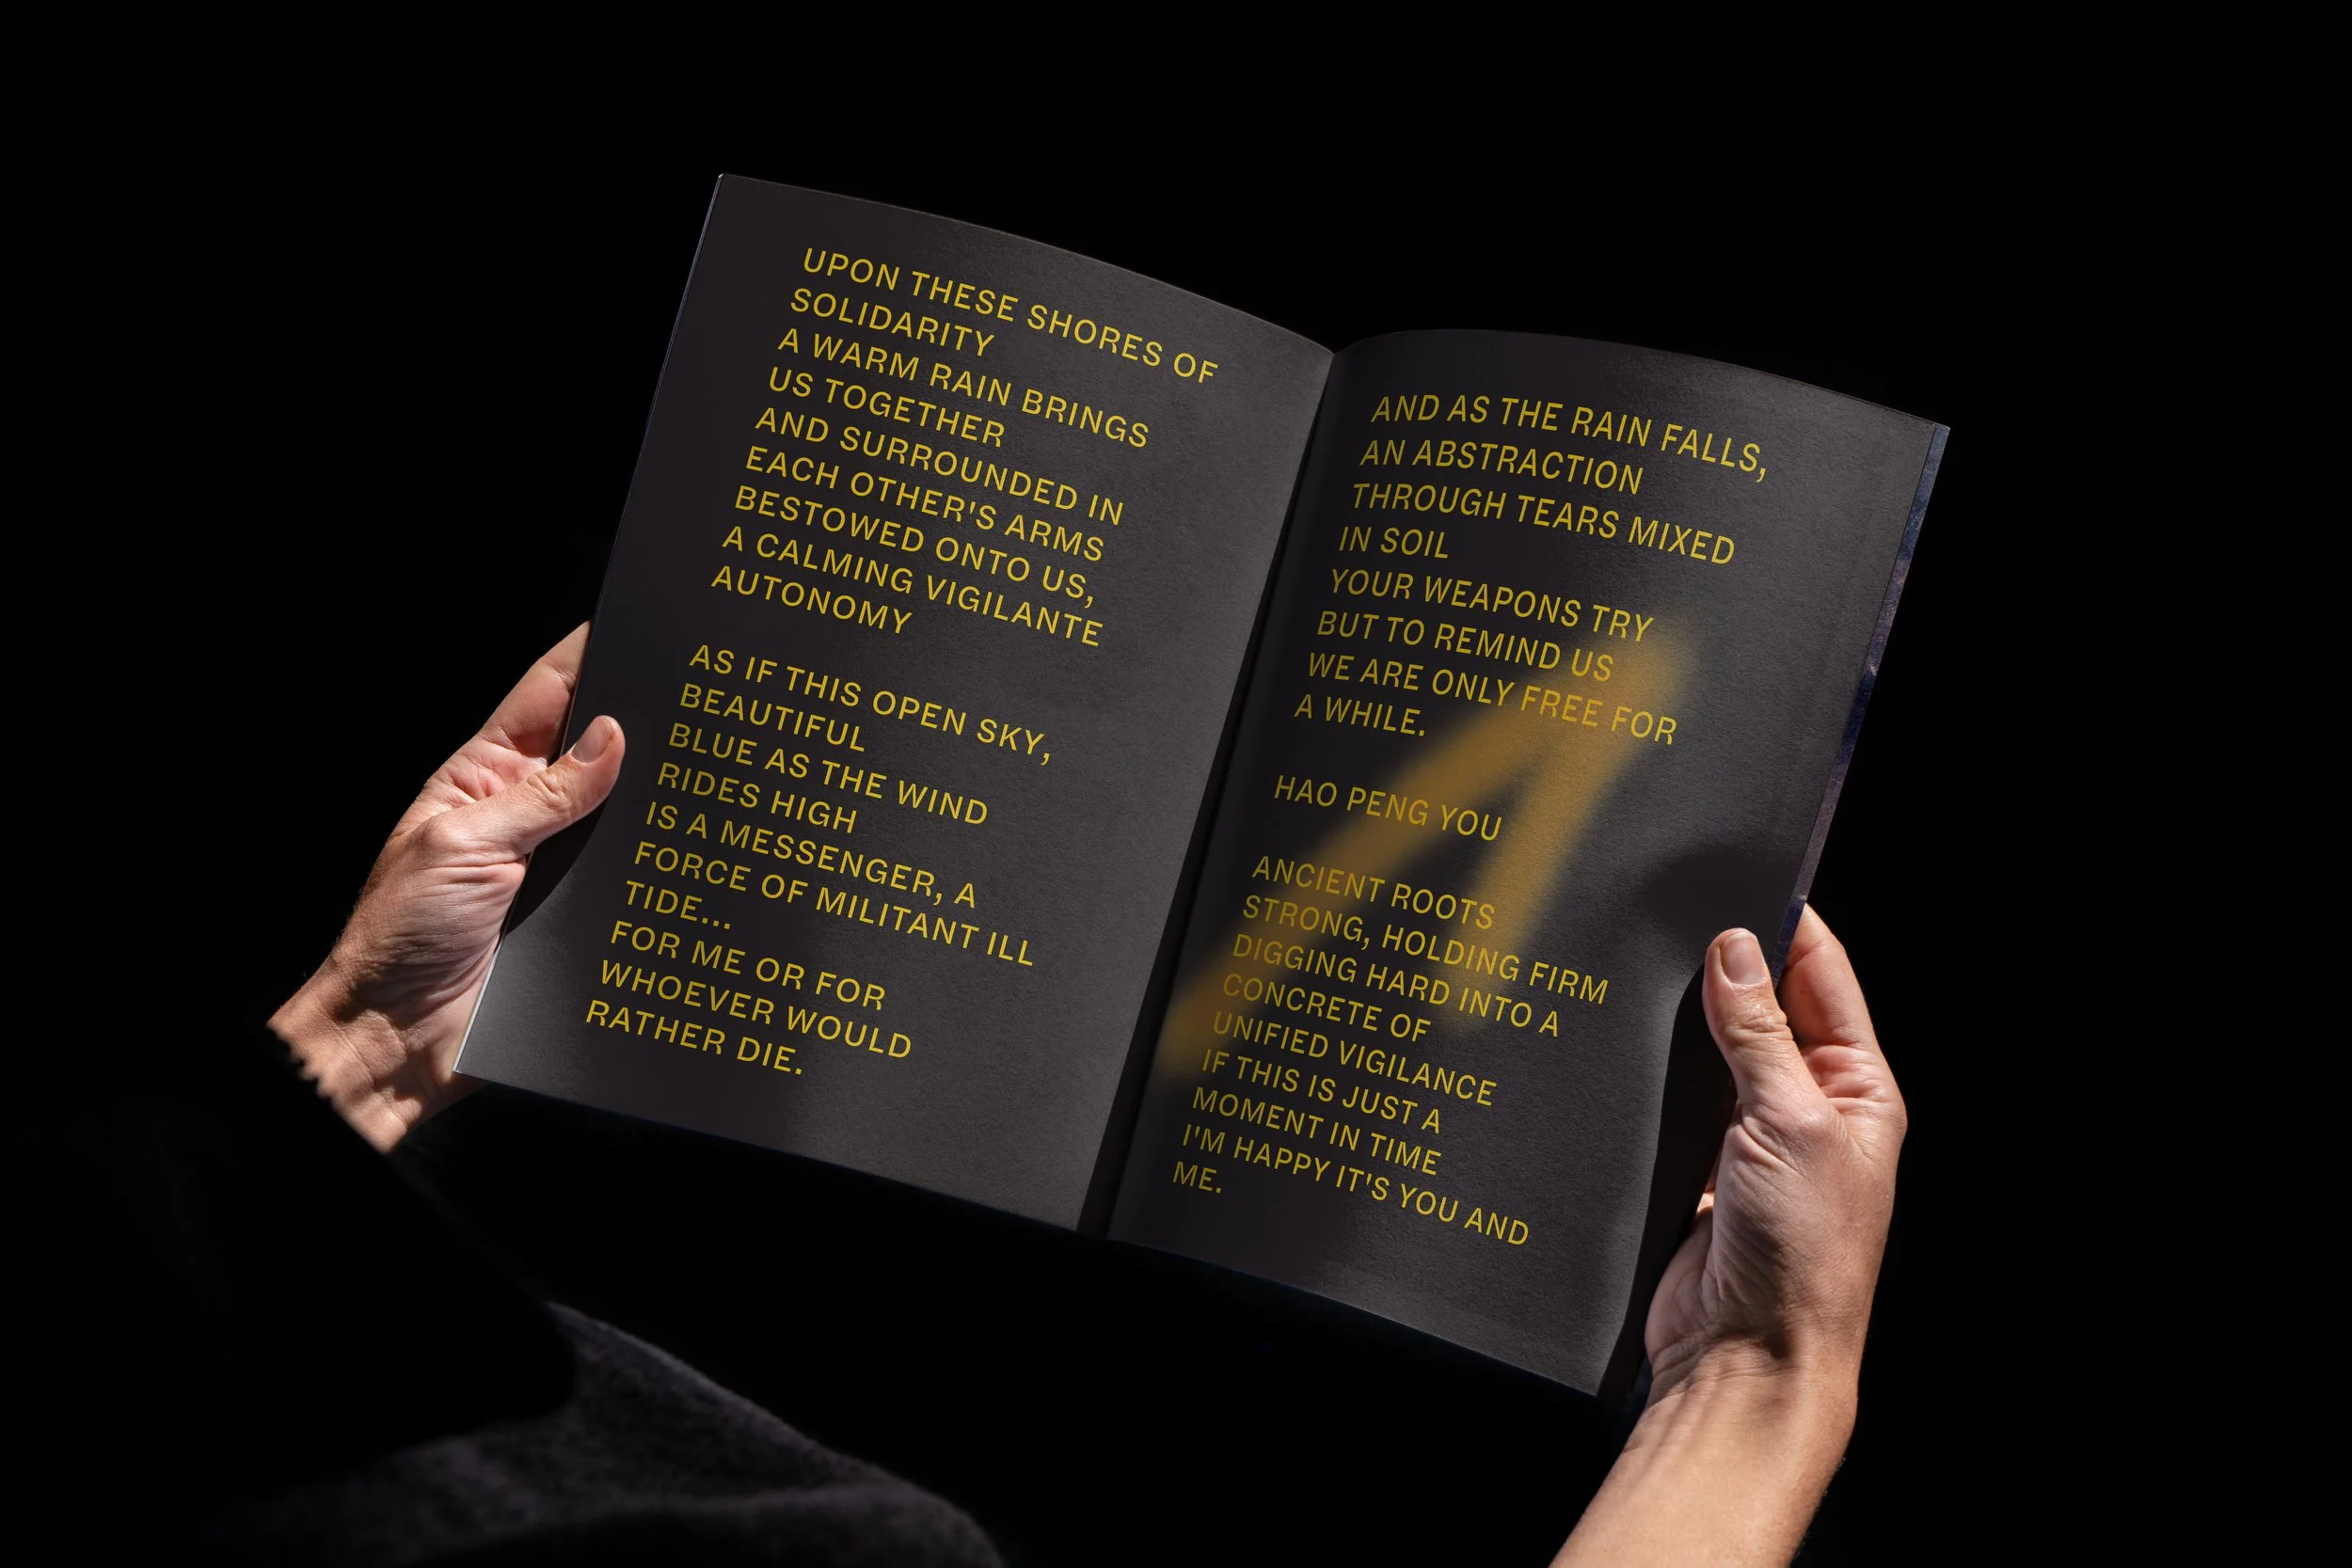 UPON THESE SHORES OF
SOLIDARITY
A WARM RAIN BRINGS
US TOGETHER
AND SURROUNDED IN
EACH OTHER'S ARMS
BESTOWED ONTO US,
A CALMING VIGILANTE
AUTONOMY
AS IF THIS OPEN SKY,
BEAUTIFUL
BLUE AS THE WIND
RIDES HIGH
IS A MESSENGER, A
FORCE OF MILITANT ILL
TIDE...
FOR ME OR FOR
WHOEVER WOULD
RATHER DIE.
AND AS THE RAIN FALLS,
AN ABSTRACTION
THROUGH TEARS MIXED
IN SOIL
YOUR WEAPONS TRY
BUT TO REMIND US
WE ARE ONLY FREE FOR
A WHILE.
HAO PENG YOU
ANCIENT ROOTS
STRONG, HOLDING FIRM
DIGGING HARD INTO A
CONCRETE OF
UNIFIED VIGILANCE
IF THIS IS JUST A
MOMENT IN TIME
I'M HAPPY IT'S YOU AND
ME.